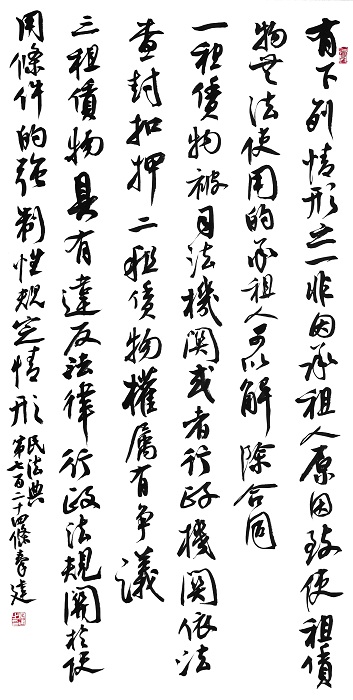 有下列情形之一非因承租人原因致使租賃
物无法使用的承租人可以解除合同
一租賃物被司法機関或者行政機関依法
查封扣押二租賃物權属有争議
三租賃物具有違反法律行政法規関於使
用條件的强制性規定情形
民法典
第七百二十四條